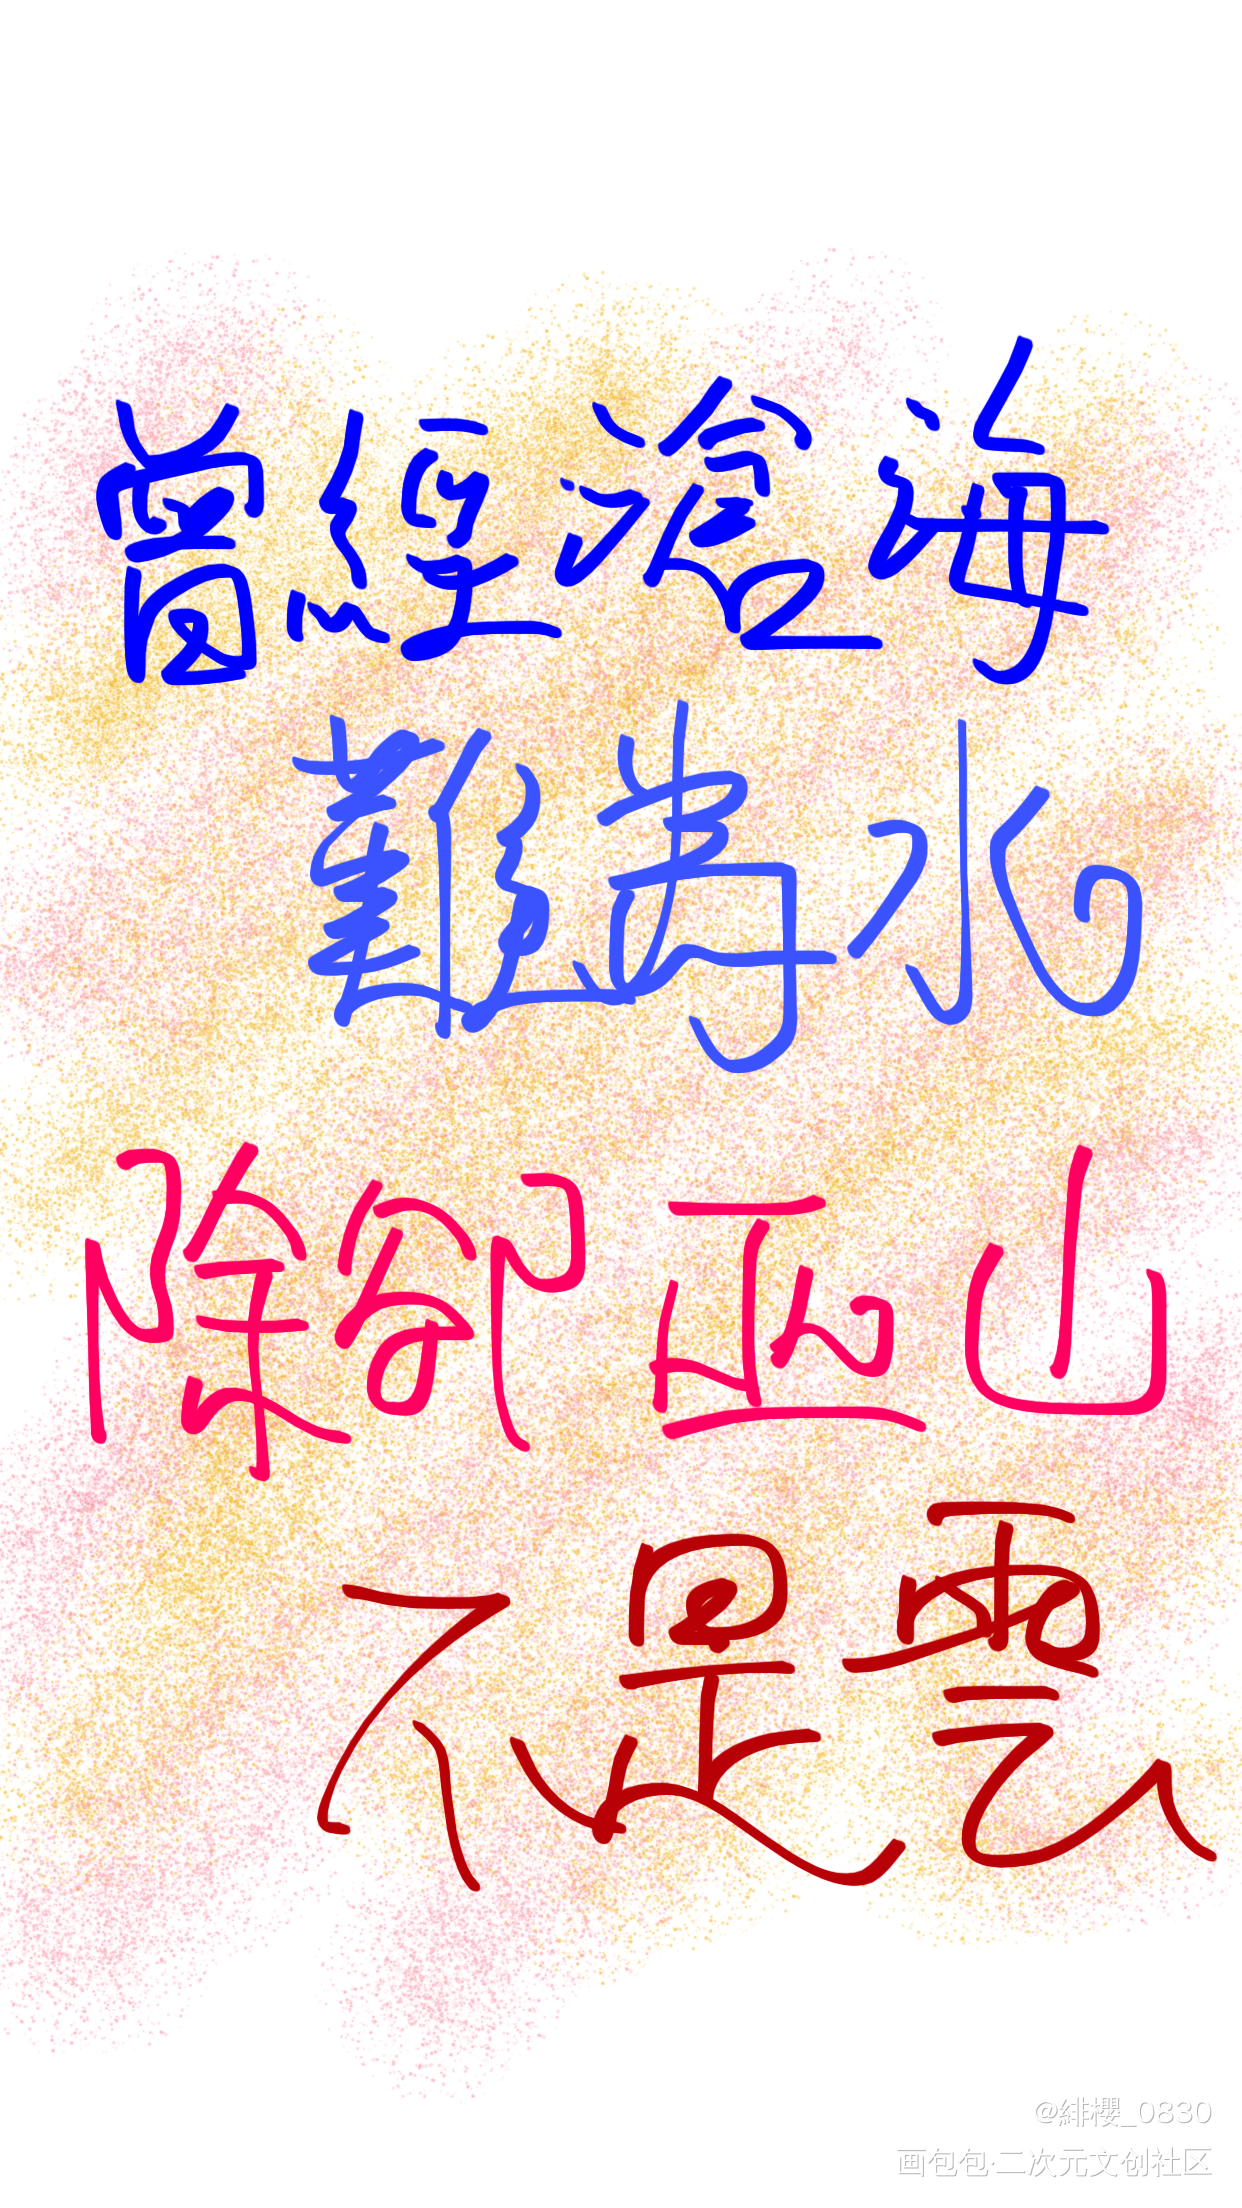 曾經滄海
難為水
除卻巫山
不是雲
@緋櫻_0830
画包包·二次元文创社区